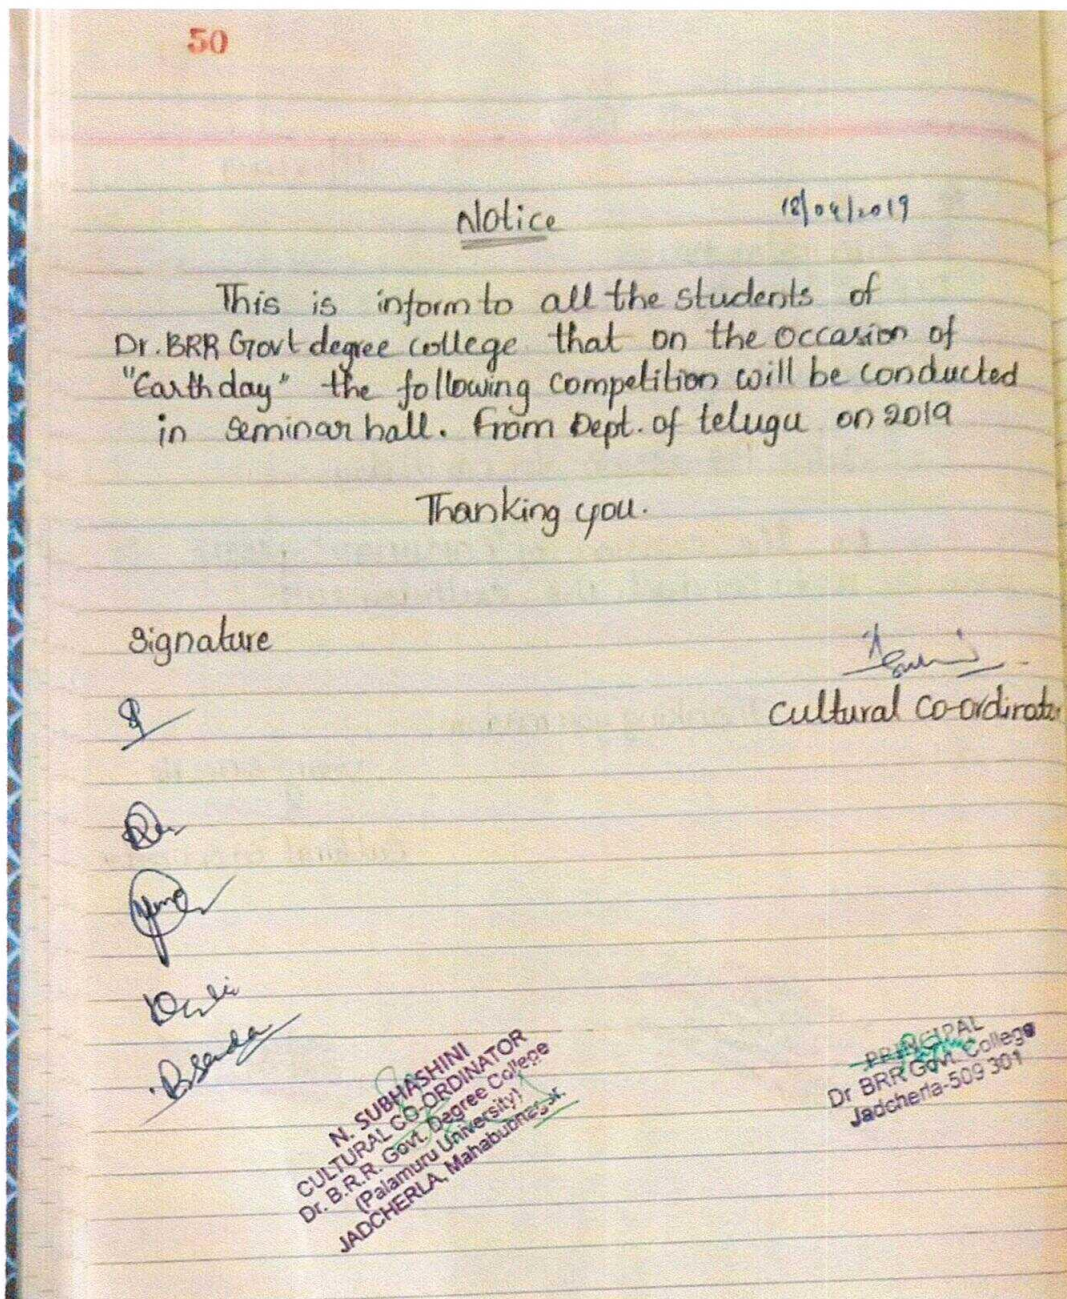 50
Notice
18/04/2019
This is inform to all the students of
Dr. BRR Govt degree college that on the occasion of
"Earth day" the following competition will be conducted
in seminar hall. From Dept. of telugu on 2019
Thanking you.
Signature
Cultural Co-ordinator
N. SUBHASHINI
CULTURAL CO-ORDINATOR
Dr. B.R.R. Govt. Degree College
(Palamuru University)
JADCHERLA, Mahabubnagar.
PRINCIPAL
Dr BRR Govt. College
Jadcherla-509 301